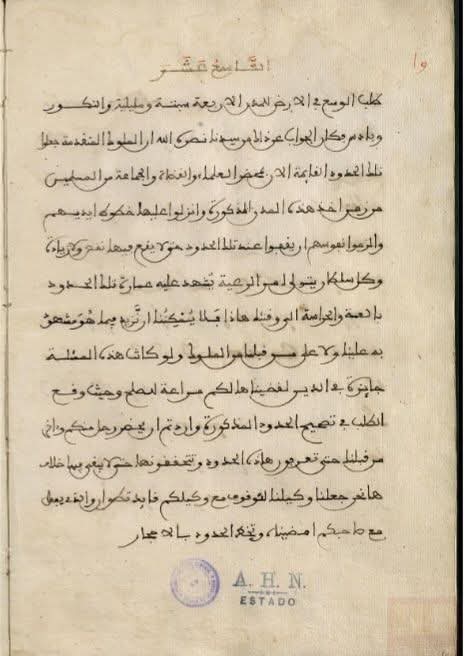 19
التاسع عشر
طلب الوسع في الارض للمدن الاربعة سبتة ومليلية والنكور
وبادس فكان الجواب عن ذلك من سيدنا نصره الله ان الملوك المتقدمة جعلوا
تلك الحدود القايمة الان بمحضر العلماء والقضاة والجماعة من المسلمين
من زمن اخذ هذه المدن المذكورة وانزلوا عليها خطوط ايديهم
والزموا نفوسهم ان يقفوا عند تلك الحدود حتى لا يقع فيها نقص ولا زيادة
وكل سلطان يتولى امر الرعية يشهد عليه عمارة تلك الحدود
بالعسة والحراسة الى وقتنا هاذا فلا يمكننا ان نزيد فيما هو مشهود
به علينا ولا على من قبلنا من الملوك ولو كانت هذه المسئلة
جايزة في الدين لقضيناها لكم مراعة للصلح وحيث وقع
الطلب في تصحيح الحدود المذكورة واردتم ان يحضر رجل منكم واخر
من قبلنا حتى تعرفون هاذه الحدود وتتحققونها حتى لا يبقى فيها خلاف
ها نحن جعلنا وكيلنا للوقوف مع وكيلكم قايد تطوان والذي يفعل
مع صاحبكم امضيناه وتخط الحدود بالاحجار
A. H. N.
ESTADO